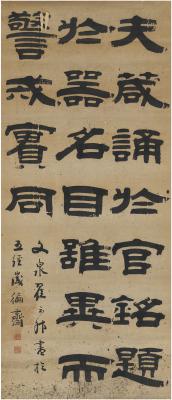 夫箴誦於官銘題
於器名目雖異而
警戒實同
文泉翟云升書於
五經歲徧齋